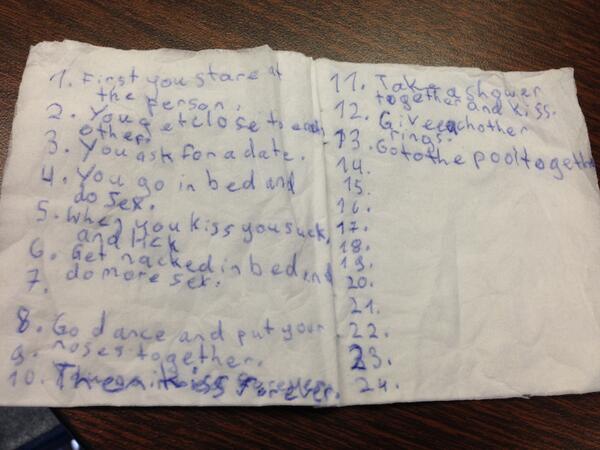 1. First you stare at
the person.
2. You get close to each
other.
3. You ask for a date.
4. You go in bed and
do sex.
5. When you kiss you suck,
and lick
6. Get nacked in bed and
7. do more sex.
8. Go dance and put your
9. noses together.
10. Then kiss forever.
11. Take a shower
together and kiss.
12. Give eachother
rings.
13. Go to the pool together
14.
15.
16.
17.
18.
19.
20.
21.
22.
23.
24.